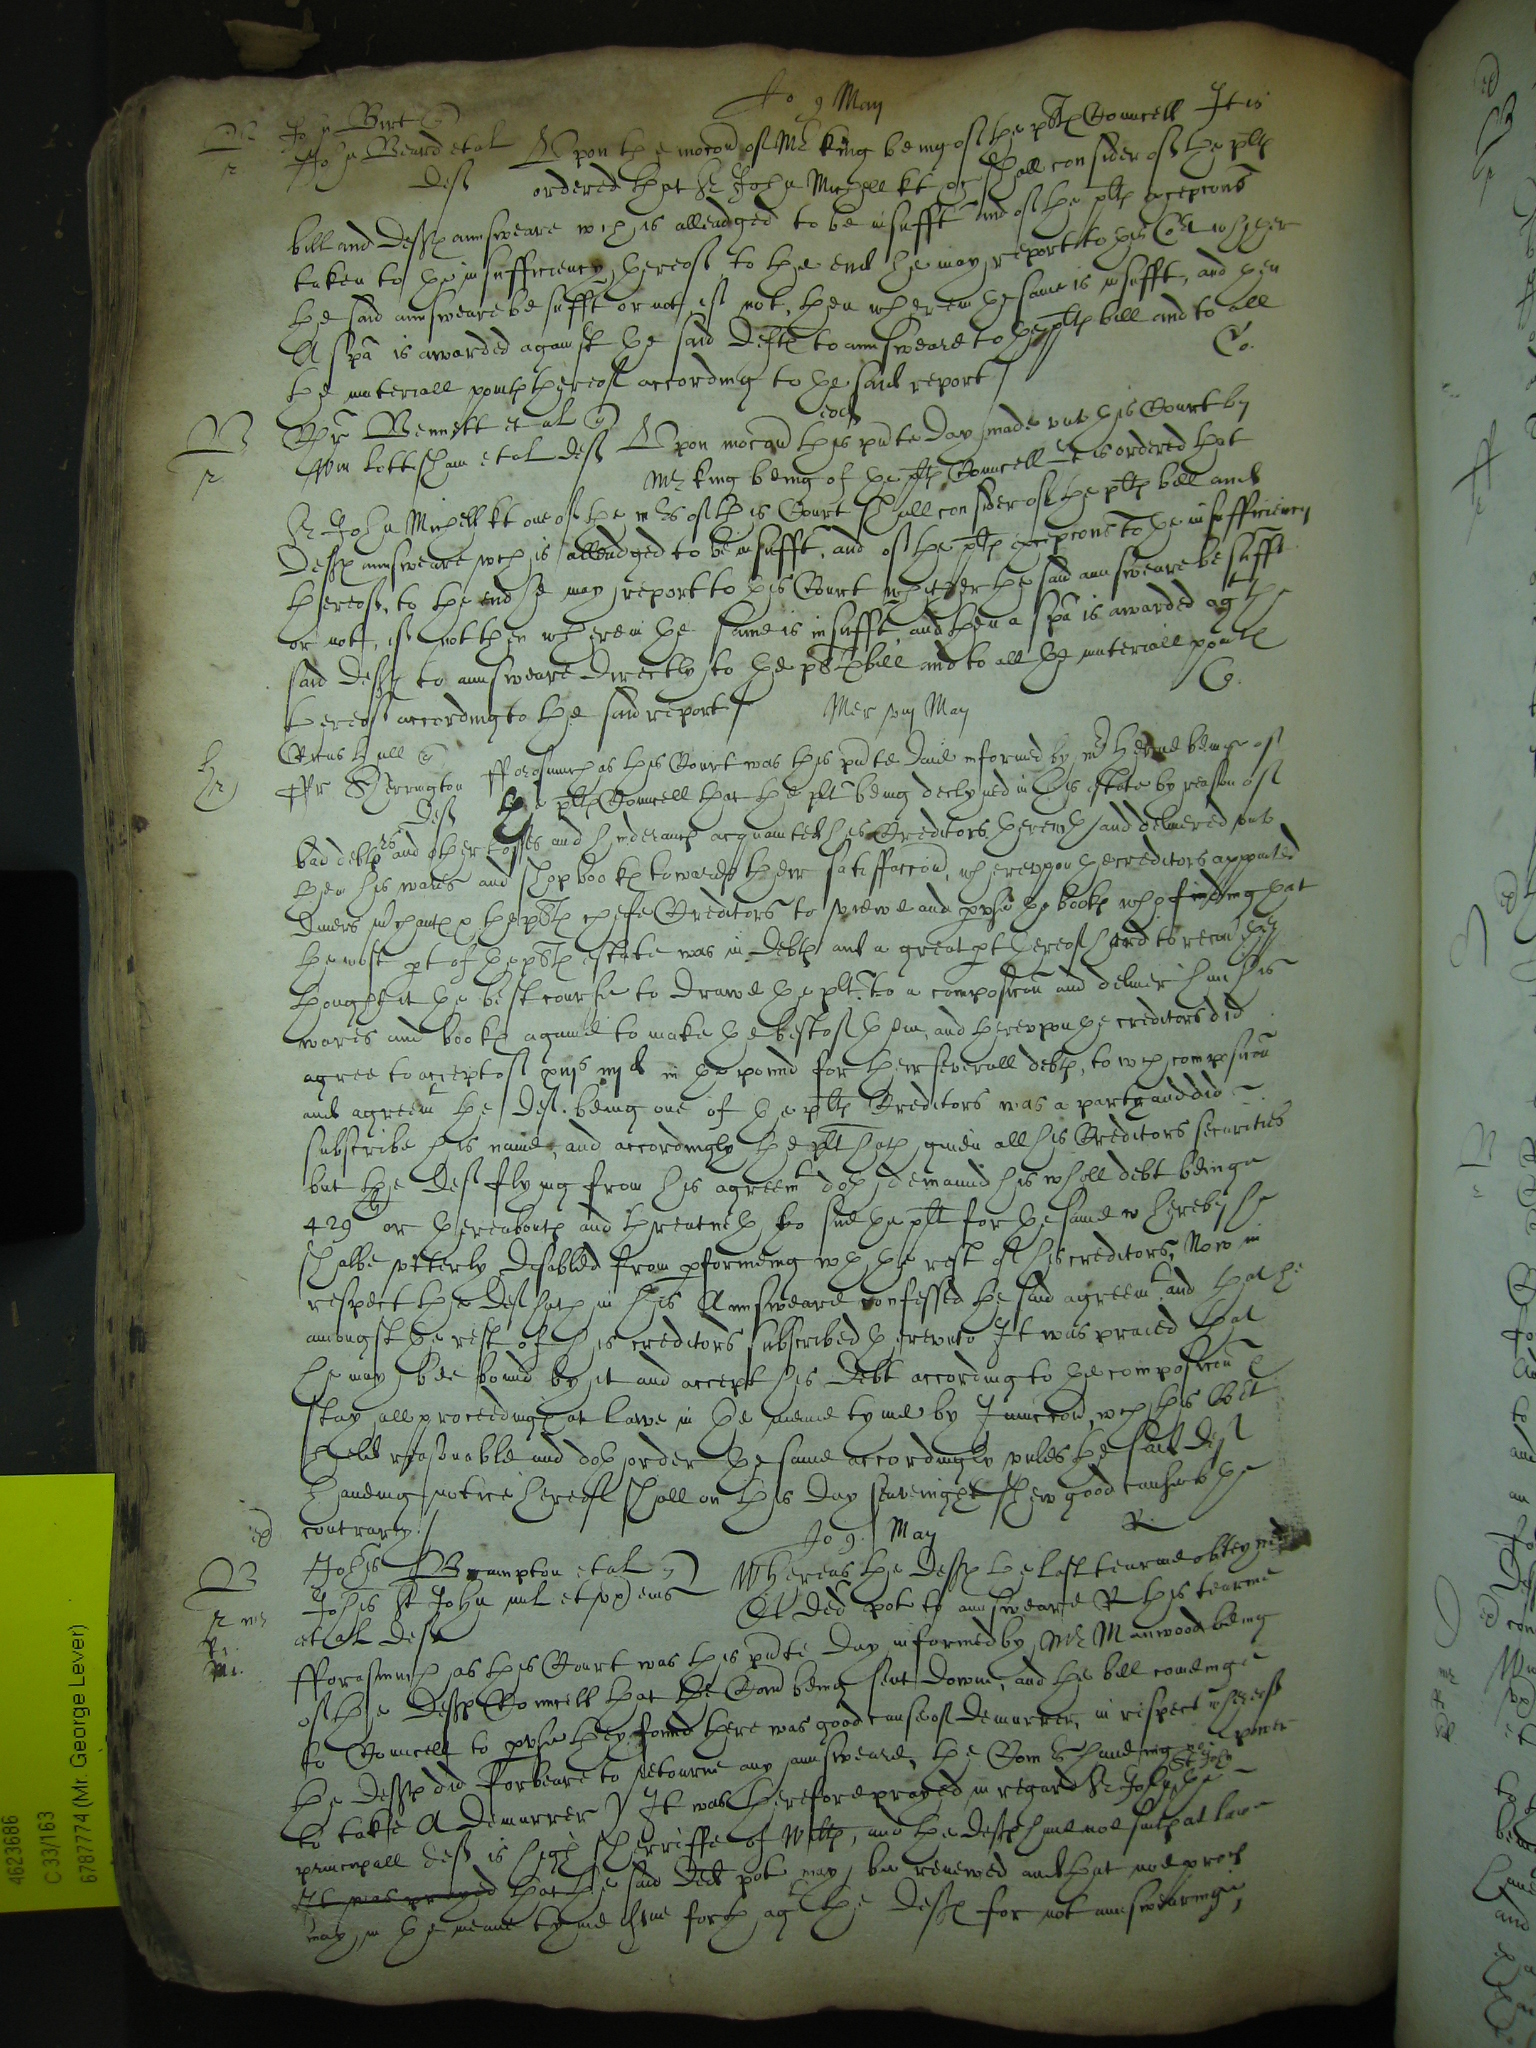 Jo 9 May
John Birt
John Beard et al Upon the mocon of Mr King being of the plts Councell It is
deft ordered that Sr John Michell kt &c shall consider of the plts
bill and defts aunsweare wch is alleadged to be insufft and of the plts excepcons
taken to the insufficiency thereof to the end he may report to this Cort whether
the said aunsweare be sufft or not, if not, then wherein the same is insufft, and then
A spa is awarded against the said defts to aunsweare to the plts bill and to all
the materiall points thereof according to the said report / Co.
eod
Chr Bennett et al
Wm Lottisham et al deft Upon mocon this pnte day made unto this Court by
Mr King being of the plts Councell It is ordered that
Sr John Michell kt one of the mrs of this Court shall consider of the plts bill and
defts aunsweare wch is alleadged to be insufft, and of the plts excepcons to the insufficiency
thereof, to the end he may report to this Court whether the said aunsweare be sufft
or not, if not then wherein the same is insufft and then a spa is awarded agt the
said defts to aunsweare directly to the plts bill and to all the materiall points
thereof according to the said report / Co.
Mer viij May
hall
Fr Sherrington fforasmuch as this Court was this pnte daie informed by mr Hearne being of
deft the plts Councell that the plt being declyned in his estate by reason of
bad debts and other losses and hinderances acquainted his Creditors therewth and delivered unto
them his wares and shop books towards their satisfaccion, whereupon the creditors appointed
divers mrchants the plts chefe Creditors to viewe and pvse the books who finding that
the most pt of the plts estate was in debts and a great pt thereof hard to recover they
thought it the best course to drawe the plt to a composicon and deliver him his
wares and books againe to make the best of them, and thereupon the creditors did
agree to accept of xiijs iiijd in the pound for their severall debts, to wch composicon
and agreemt the deft. being one of the plts Creditors was a party and did
subscribe his name, and accordingly the plt hath given all his Creditors securities
but the deft flying from his agreemt doth demaund his wholl debt being
429 li or thereabouts and threatneth to sue the plt for the same whereby he
shalbe utterly disabled from pformeing wth the rest of his creditors, Now in
respect the deft hath in his Aunsweare confessed the said agreemt and that he
amongst the rest of his creditors subscribed thereunto It was praied that
he may bee bound by it and accept his debt according to the composicon &
stay all proceedings at lawe in the meane tyme by Iniuccon, wch this Cort
held reasonable and doth order the same accordingly unles the said deft
haveing notice hereof shall on this day seavenight shew good cause to the
contrary / R.
Jo 9. May
Johes Brampton et al
Johes St John mil et ux eius Whereas the defts the last tearme obteyned
et al defts A ded pot to aunsweare R this tearme
fforasmuch as this Court was this pnte day informed by Mr Manwood being
of the defts Councell that the Com being sent downe, and the bill comeinge
to Councell to pvse they found there was good cause of demurrer, in respect whereof
the defts did forbeare to retourne any aunsweare, the Comrs haveing noe power
to take A demurrer / It was therefore prayed in regard Sr John St John the
principall deft is high Sherriffe of Wilts, and the defts have noe suits at lawe
It was prayed that the said ded pot may be renewed and that noe proces
may in the meane tyme issue forth agt the defts for not aunswearinge,
4623686
C 33/163
6787774 (Mr. George Lever)